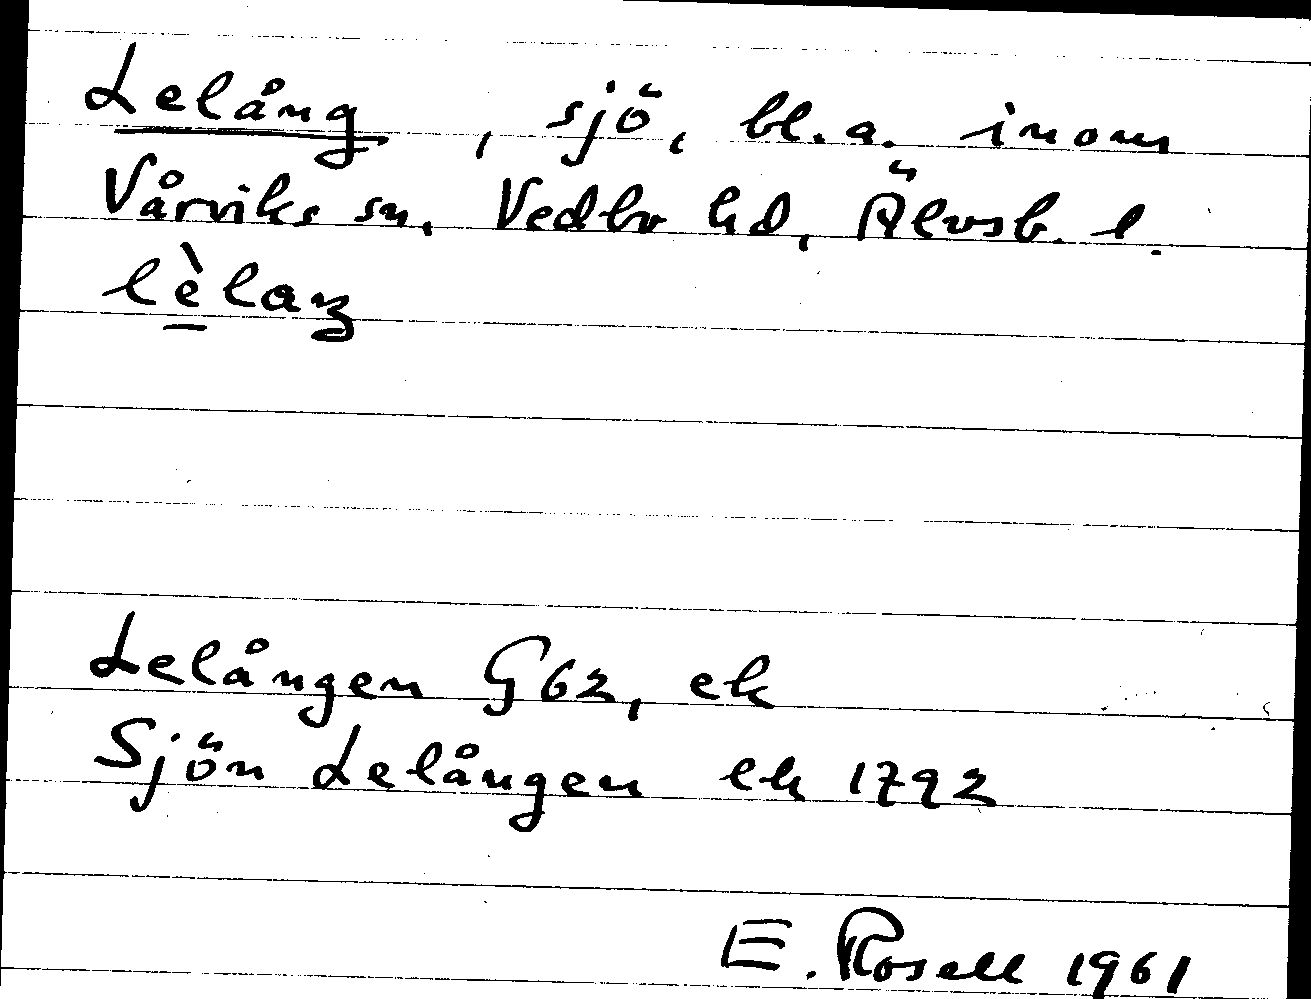 Lelång, sjö, bl. a. inom
Vårviks sn, Vedbo hd, Älvsb. l.
lèlaŋ
Lelången G 62, ek
Sjön Lelången ek 1792
E. Rosell 1961